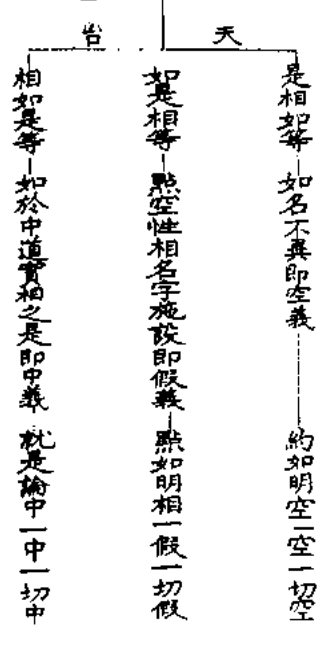 天台
是相如等—如名不異即空義———約如明空一空一切空
如是相等—點空性相名字施設即假義—點如明相一假一切假
相如是等—如於中道實相之是即中義 就是論中一中一切中